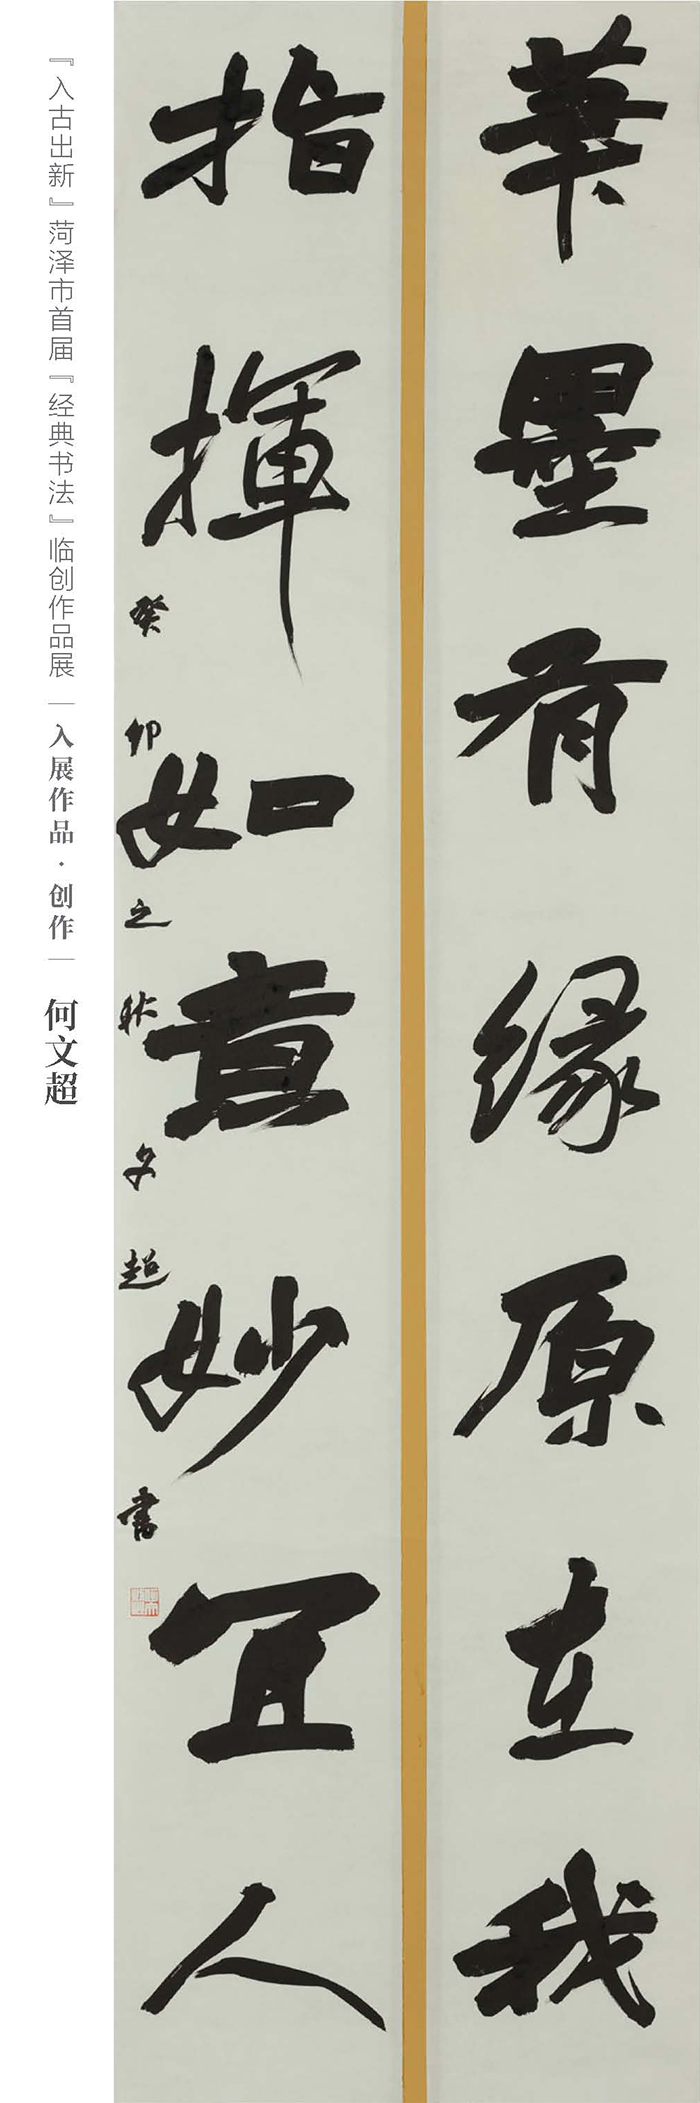 筆墨有緣原在我
指揮如意妙宜人
癸卯之秋文超書
『入古出新』菏泽市首届『经典书法』临创作品展｜入展作品·创作｜何文超